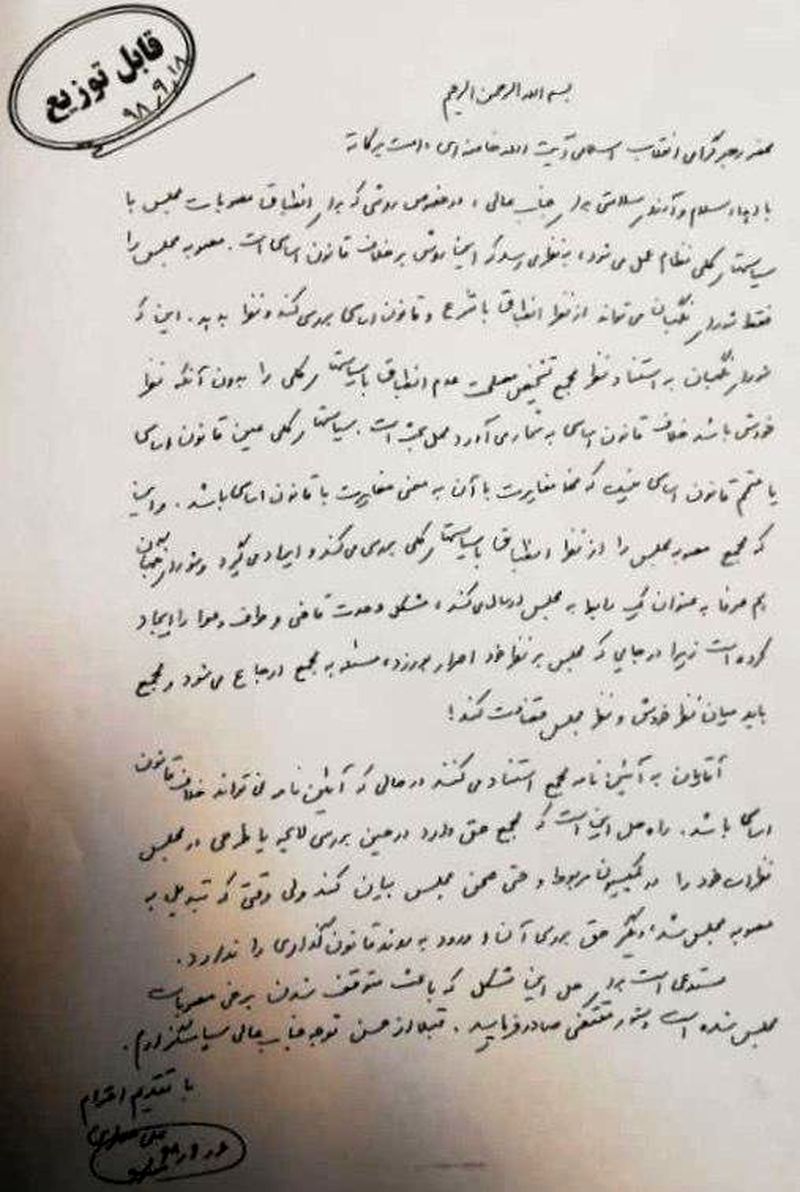 قابل توزیع
۹۸,۹,۱۸
بسم الله الرحمن الرحیم
محضر رهبر گرامی انقلاب اسلامی آیت الله خامنه‌ای دامت برکاته
با اهداء سلام و آرزوی سلامتی برای جنابعالی، در خصوص روشی که برای انطباق مصوبات مجلس با
سیاستهای کلی نظام عمل می‌شود، به نظر می‌رسد که این روش برخلاف قانون اساسی است. مصوبه مجلس را
فقط شورای نگهبان می‌تواند از نظر انطباق با شرع و قانون اساسی بررسی کند و نظر بدهد. این که
شورای نگهبان به استناد نظر مجمع تشخیص مصلحت عدم انطباق با سیاستهای کلی را بدون آنکه نظر
خودش باشد خلاف قانون اساسی به شمار می‌آورد محل بحث است. سیاستهای کلی عین قانون اساسی
یا متمم قانون اساسی نیست که مغایرت با آن به معنی مغایرت با قانون اساسی باشد. و این
که مجمع مصوبه مجلس را از نظر انطباق با سیاستهای کلی بررسی می‌کند و ایراد می‌گیرد و شورای نگهبان
هم صرفا به عنوان یک رابط به مجلس ارسال می‌کند، مشکل وحدت قاضی و طرف دعوا را ایجاد
کرده است زیرا در جایی که مجلس بر نظر خود اصرار بورزد، مسئله به مجمع ارجاع می‌شود و مجمع
باید میان نظر خودش و نظر مجلس قضاوت کند!
آقایان به آئین نامه مجمع استناد می‌کنند در حالی که آئین نامه نمی‌تواند خلاف قانون
اساسی باشد. راه حل این است که مجمع حق دارد در حین بررسی لایحه یا طرحی در مجلس
نظرات خود را در کمیسیون مربوطه و حتی صحن مجلس بیان کند ولی وقتی که تبدیل به
مصوبه مجلس شد، دیگر حق بررسی آن و ورود به روند قانون گذاری را ندارد.
مستدعی است برای حل این مشکل که باعث متوقف شدن برخی مصوبات
مجلس شده است دستور مقتضی صادر فرمایید. قبلا از حسن توجه جنابعالی سپاسگزارم.
با تقدیم احترام
علی مطهری